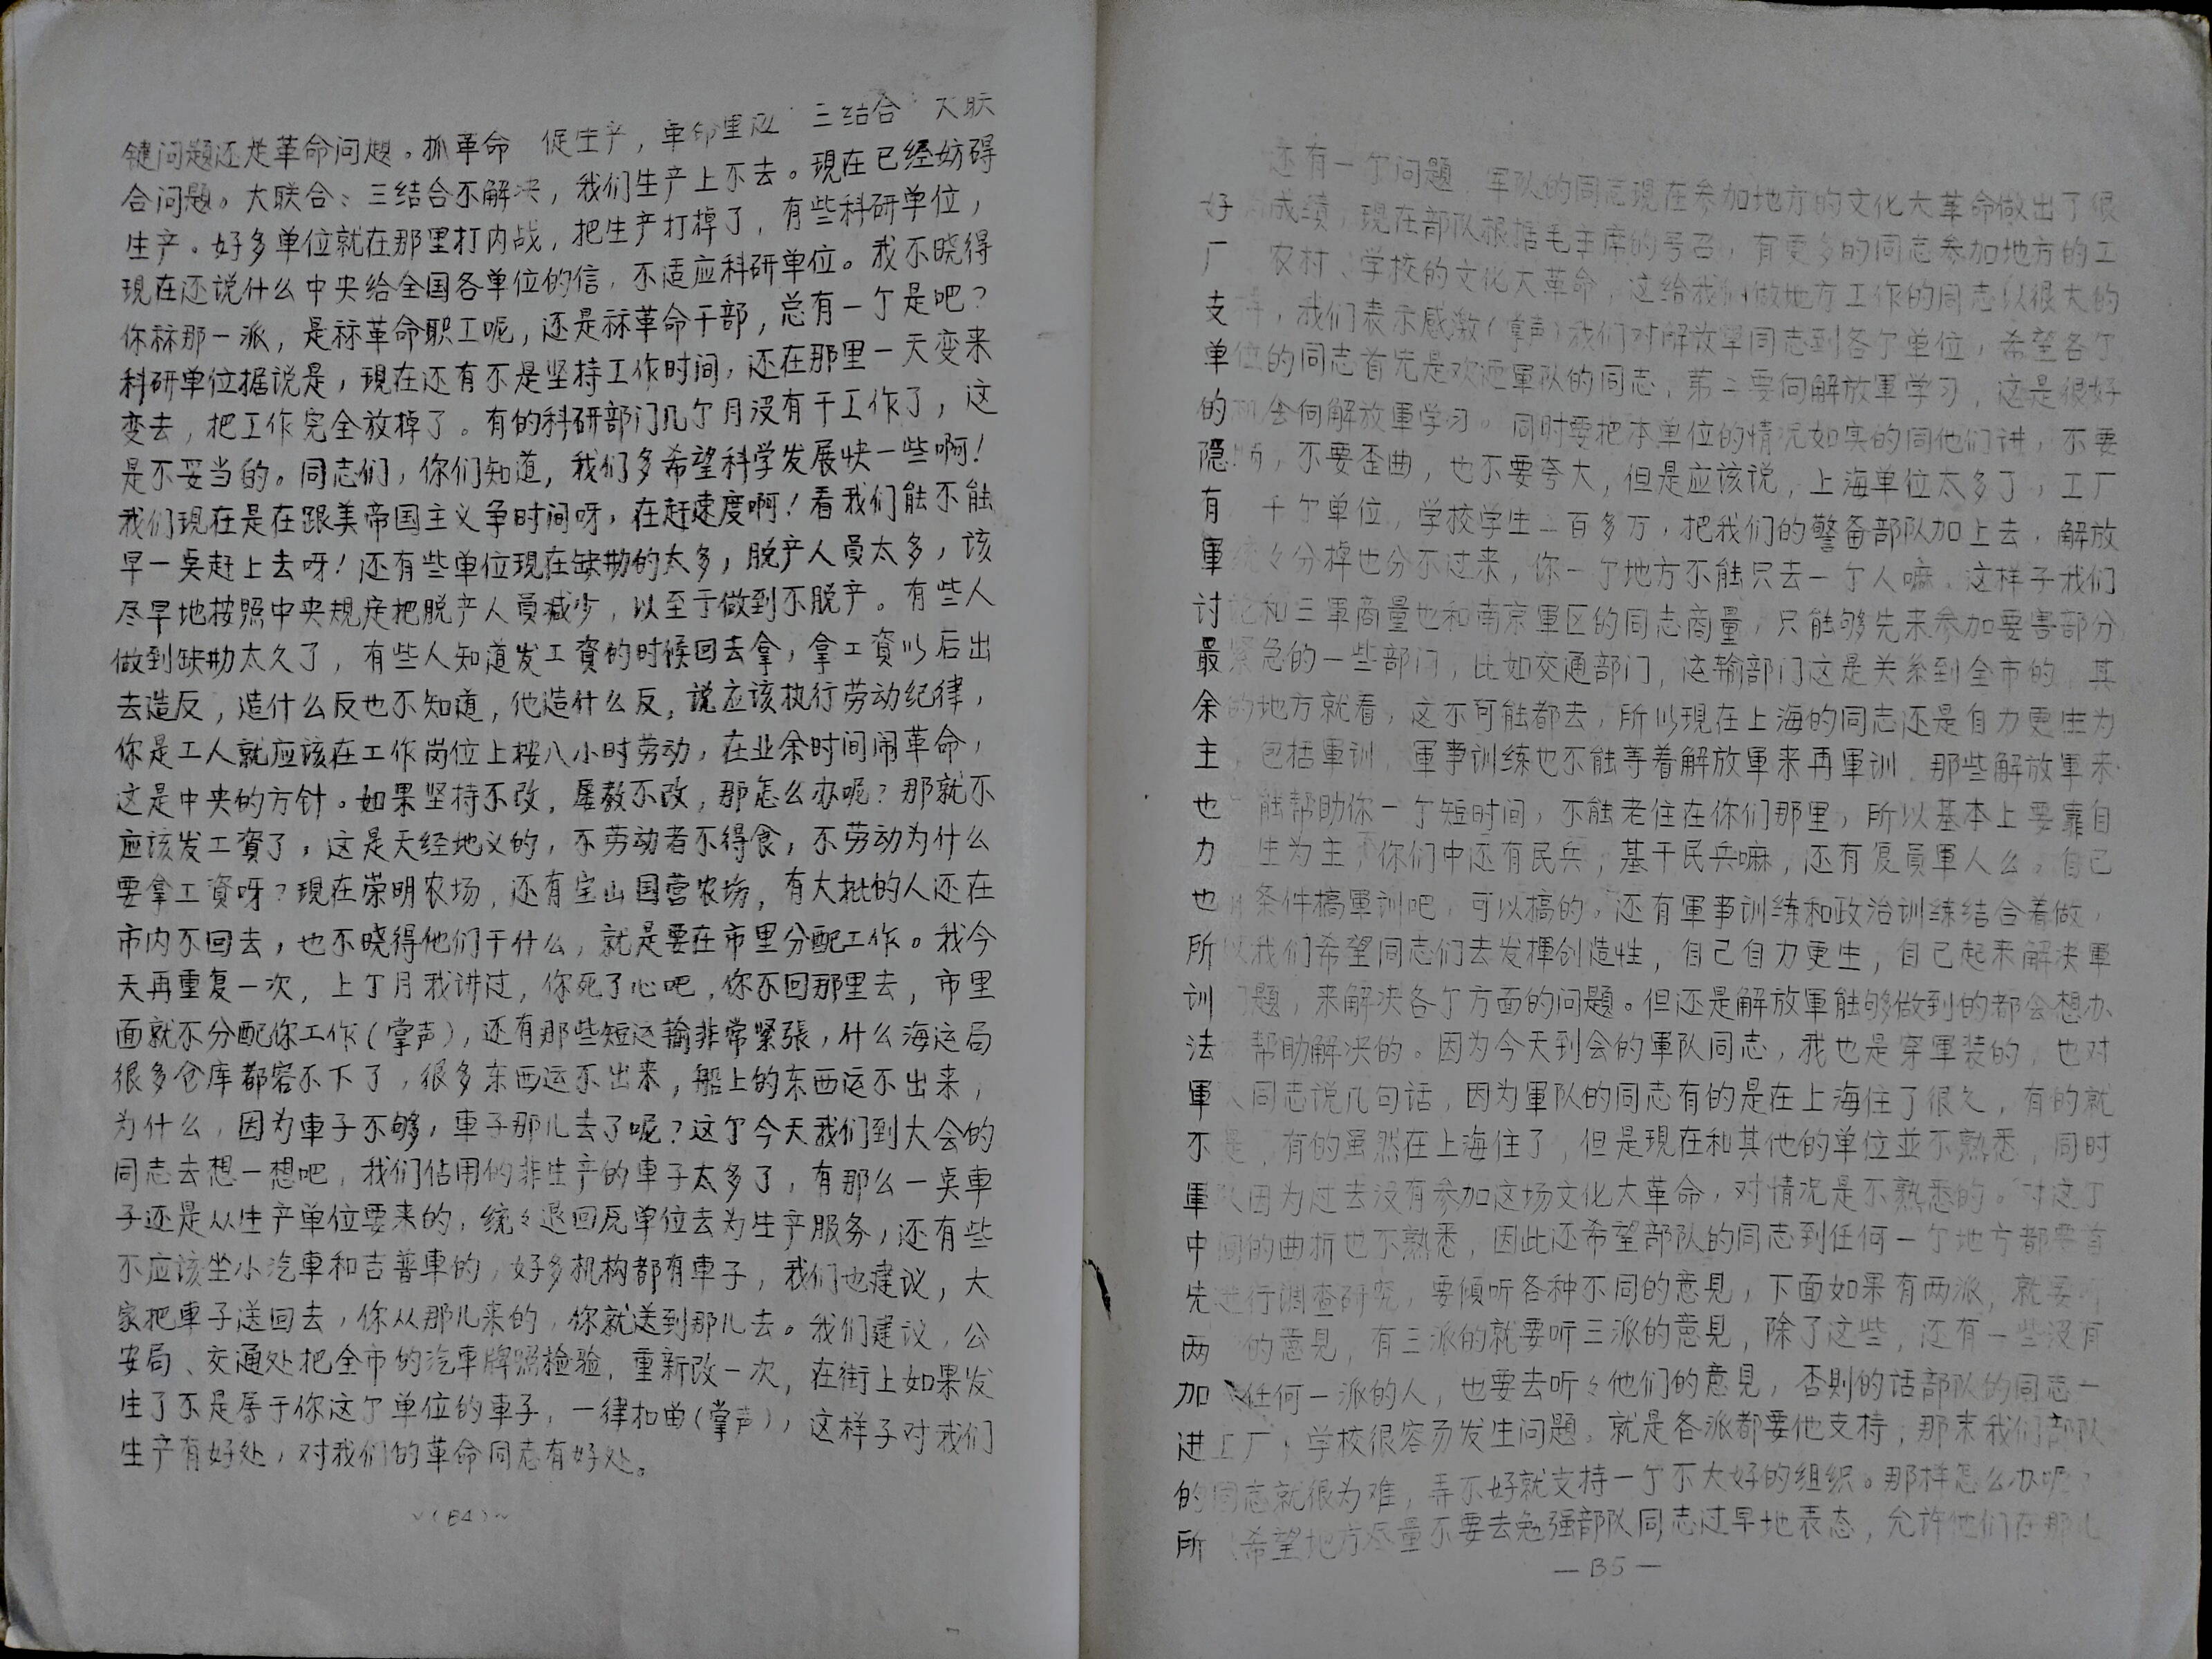 键问题还是革命问题。抓革命 促生产，革命里应 三结合 大联
合问题。大联合；三结合不解决，我们生产上不去。現在已经妨碍
生产。好多单位就在那里打内战，把生产打掉了，有些科研单位，
現在还说什么中央给全国各单位的信，不适应科研单位。我不晓得
你秝那一派，是秝革命职工呢，还是秝革命干部，总有一个是吧？
科研单位据说是，現在还有不是坚持工作时间，还在那里一天变来
变去，把工作完全放掉了。有的科研部门几个月没有干工作了，这
是不妥当的。同志们，你们知道，我们多希望科学发展快一些啊！
我们现在是在跟美帝国主义争时间呀，在赶速度啊！看我们能不能
早一奌赶上去呀！还有些单位現在缺勤的太多，脱产人員太多，该
尽早地按照中央規定把脱产人員减少，以至于做到不脱产。有些人
做到缺勤太久了，有些人知道发工資的时候回去拿，拿工資以后出
去造反，造什么反也不知道，他造什么反，说应该执行劳动纪律，
你是工人就应该在工作岗位上按八小时劳动，在业余时间闹革命，
这是中央的方针。如果坚持不改，屡教不改，那怎么办呢？那就不
应该发工資了，这是天经地义的，不劳动者不得食，不劳动为什么
要拿工資呀？現在崇明农场，还有宝山国营农场，有大批的人还在
市内不回去，也不晓得他们干什么，就是要在市里分配工作。我今
天再重复一次，上个月我讲过，你死了心吧，你不回那里去，市里
面就不分配你工作（掌声），还有那些短运输非常紧張，什么海运局
很多仓库都容不下了，很多东西运不出来，船上的东西运不出来，
为什么，因为車子不够，車子那儿去了呢？这个今天我们到大会的
同志去想一想吧，我们佔用的非生产的車子太多了，有那么一奌車
子还是从生产单位要来的，统々退回原单位去为生产服务，还有些
不应该坐小汽車和吉普車的，好多机构都有車子，我们也建议，大
家把車子送回去，你从那儿来的，你就送到那儿去。我们建议，公
安局、交通处把全市的汽車牌照检验，重新改一次，在街上如果发
生了不是属于你这个单位的車子，一律扣曲（掌声），这样子对我们
生产有好处，对我们的革命同志有好处。
（B4）
还有一个问题，军队的同志現在参加地方的文化大革命做出了很
好 成绩，現在部队根据毛主席的号召，有更多的同志参加地方的工
厂 农村、学校的文化大革命，这给我们做地方工作的同志以很大的
支持，我们表示感激（掌声）我们对解放軍同志到各个单位，希望各个
单位的同志首先是欢迎軍队的同志，第二要向解放軍学习，这是很好
的机会向解放軍学习。同时要把本单位的情况如实的同他们讲，不要
隐瞒，不要歪曲，也不要夸大，但是应该说，上海单位太多了，工厂
有 千个单位，学校学生二百多万，把我们的警备部队加上去，解放
軍统々分掉也分不过来，你一个地方不能只去一个人嘛，这样子我们
讨论和三軍商量也和南京軍区的同志商量，只能够先来参加要害部分
最紧急的一些部门，比如交通部门，运输部门这是关系到全市的，其
余的地方就看，这不可能都去，所以現在上海的同志还是自力更生为
主，包括軍训，軍事训练也不能等着解放軍来再軍训，那些解放軍来
也 能帮助你一个短时间，不能老住在你们那里，所以基本上要靠自
力 生为主，你们中还有民兵，基干民兵嘛，还有复員軍人么。自己
也 条件搞軍训吧，可以搞的。还有軍事训练和政治训练结合着做，
所以我们希望同志们去发揮创造性，自己自力更生，自己起来解决軍
训 题，来解决各个方面的问题。但还是解放軍能够做到的都会想办
法 帮助解决的。因为今天到会的軍队同志，我也是穿軍装的，也对
軍 同志说几句话，因为軍队的同志有的是在上海住了很久，有的就
不是，有的虽然在上海住了，但是現在和其他的单位並不熟悉，同时
軍队因为过去没有参加这场文化大革命，对情况是不熟悉的。对这个
中间的曲折也不熟悉，因此还希望部队的同志到任何一个地方都要首
先进行调查研究，要倾听各种不同的意見，下面如果有两派，就要
两 的意見，有三派的就要听三派的意見，除了这些，还有一些没有
加 任何一派的人，也要去听々他们的意見，否則的话部队的同志一
进工厂，学校很容易发生问题。就是各派都要他支持，那末我们部队
的同志就很为难，弄不好就支持一个不大好的组织。那样怎么办呢？
所以希望地方尽量不要去勉强部队同志过早地表态，允许他们在那儿
— B5 —